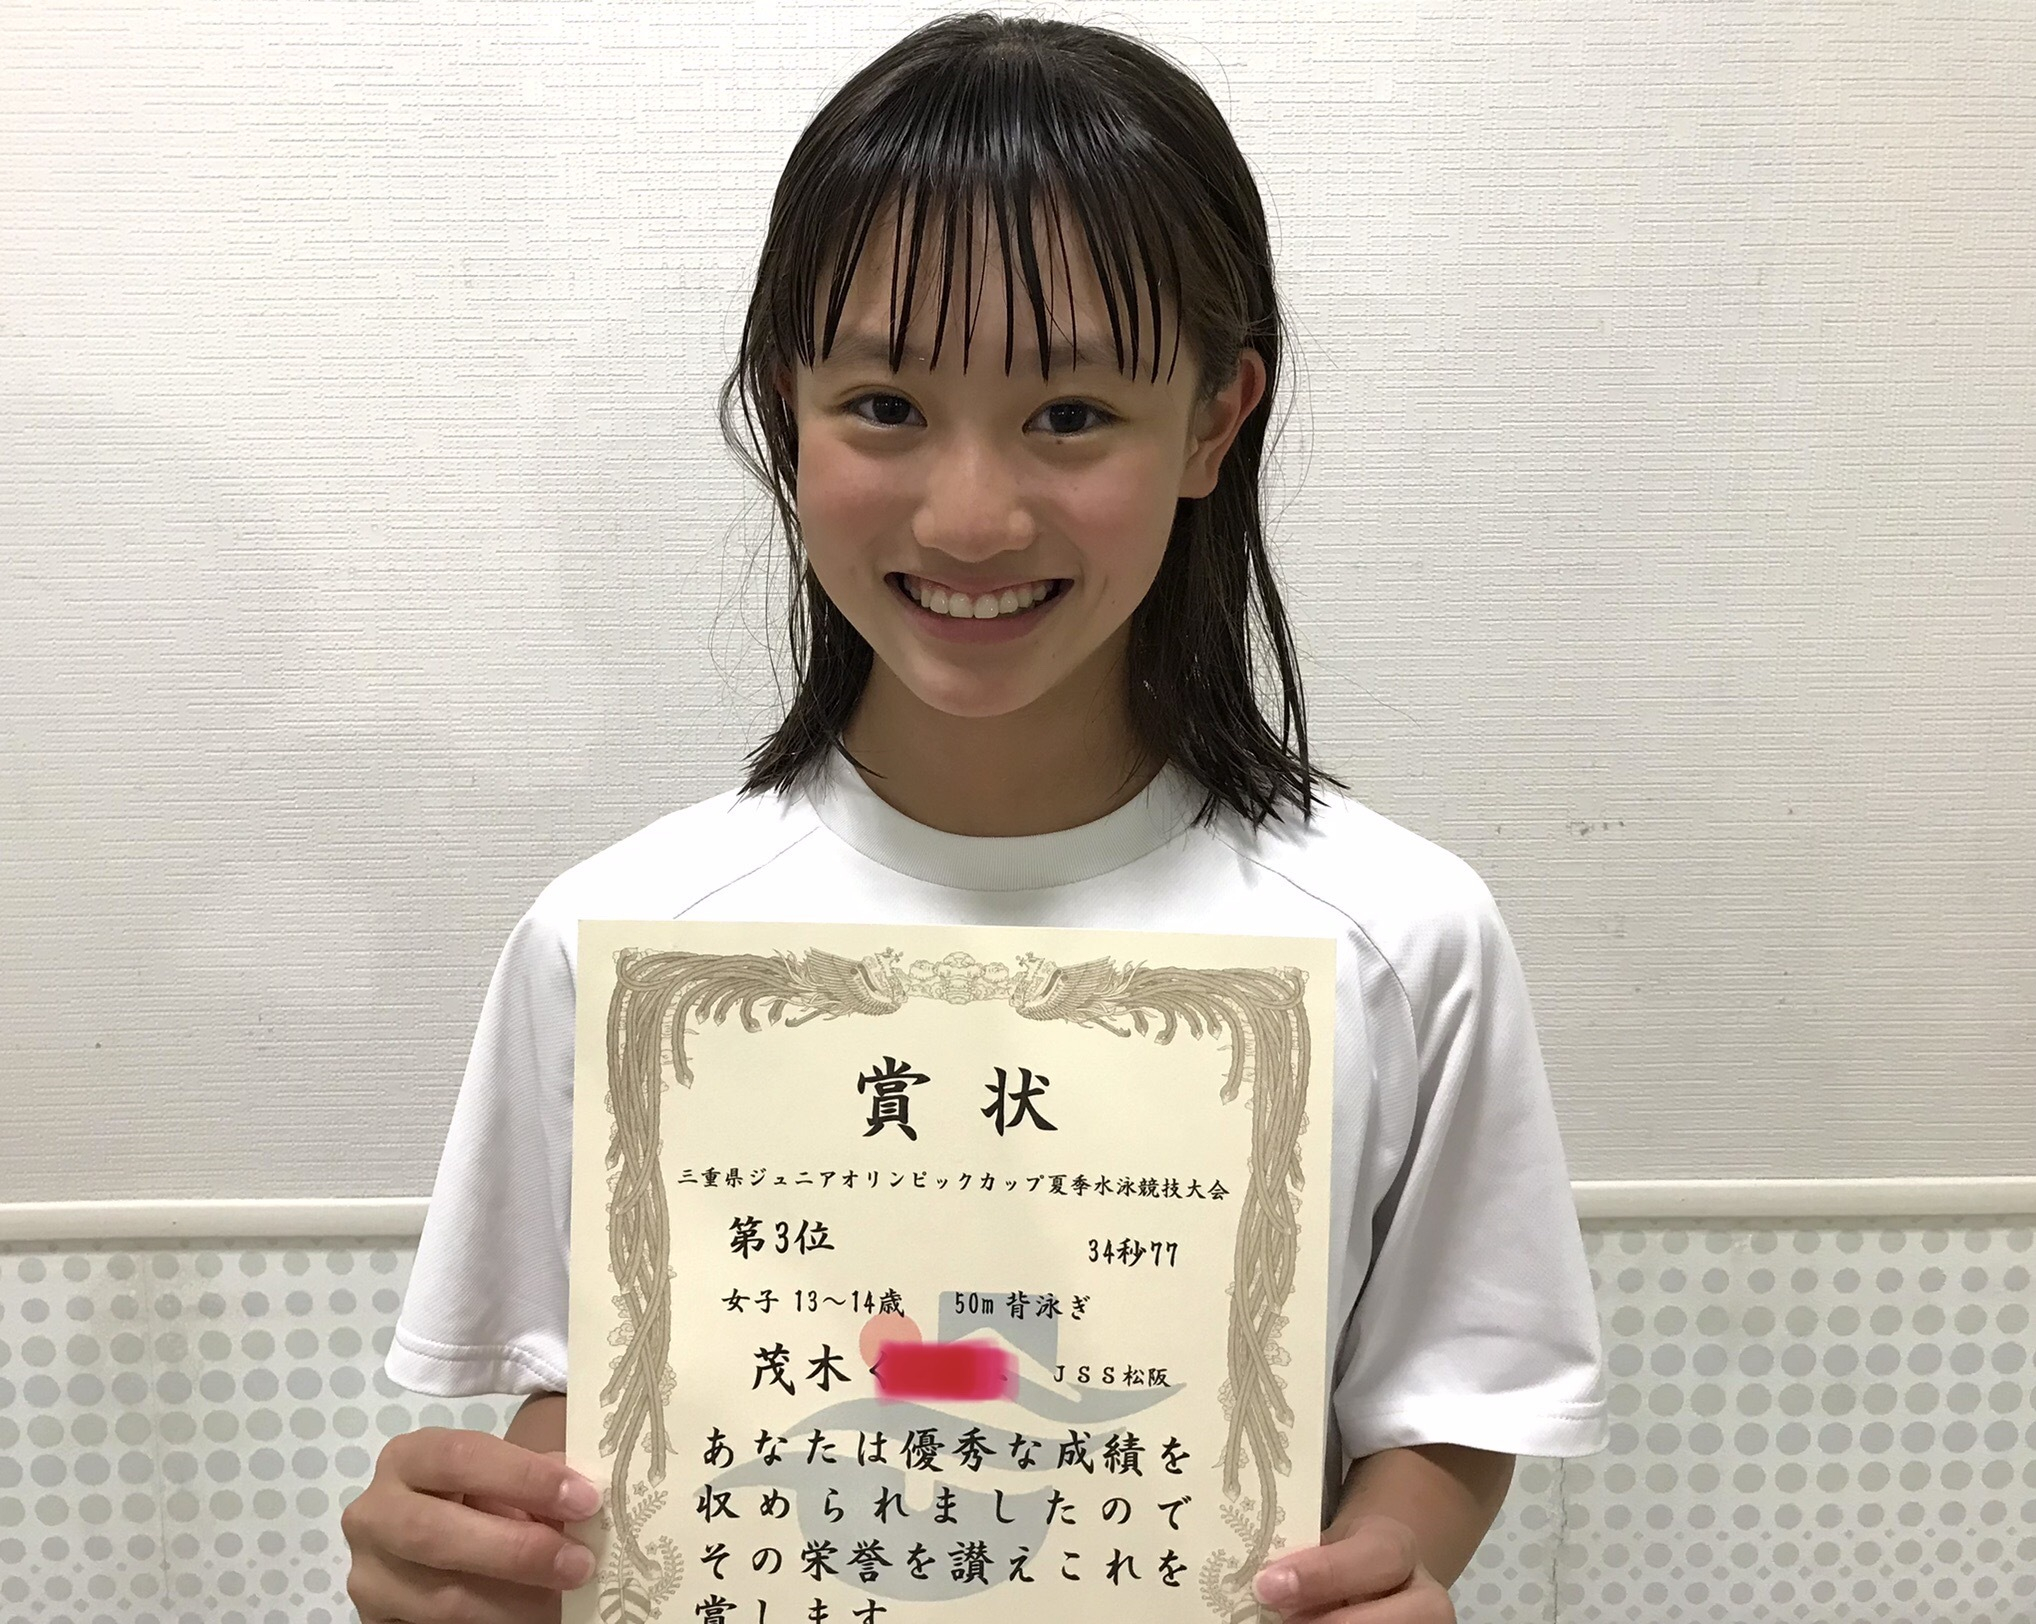 賞状
三重県ジュニアオリンピックカップ夏季水泳競技大会
第3位 34秒77
女子 13～14歳 50m 背泳ぎ
茂木 JSS松阪
あなたは優秀な成績を
収められましたので
その栄誉を讃えこれを
賞します